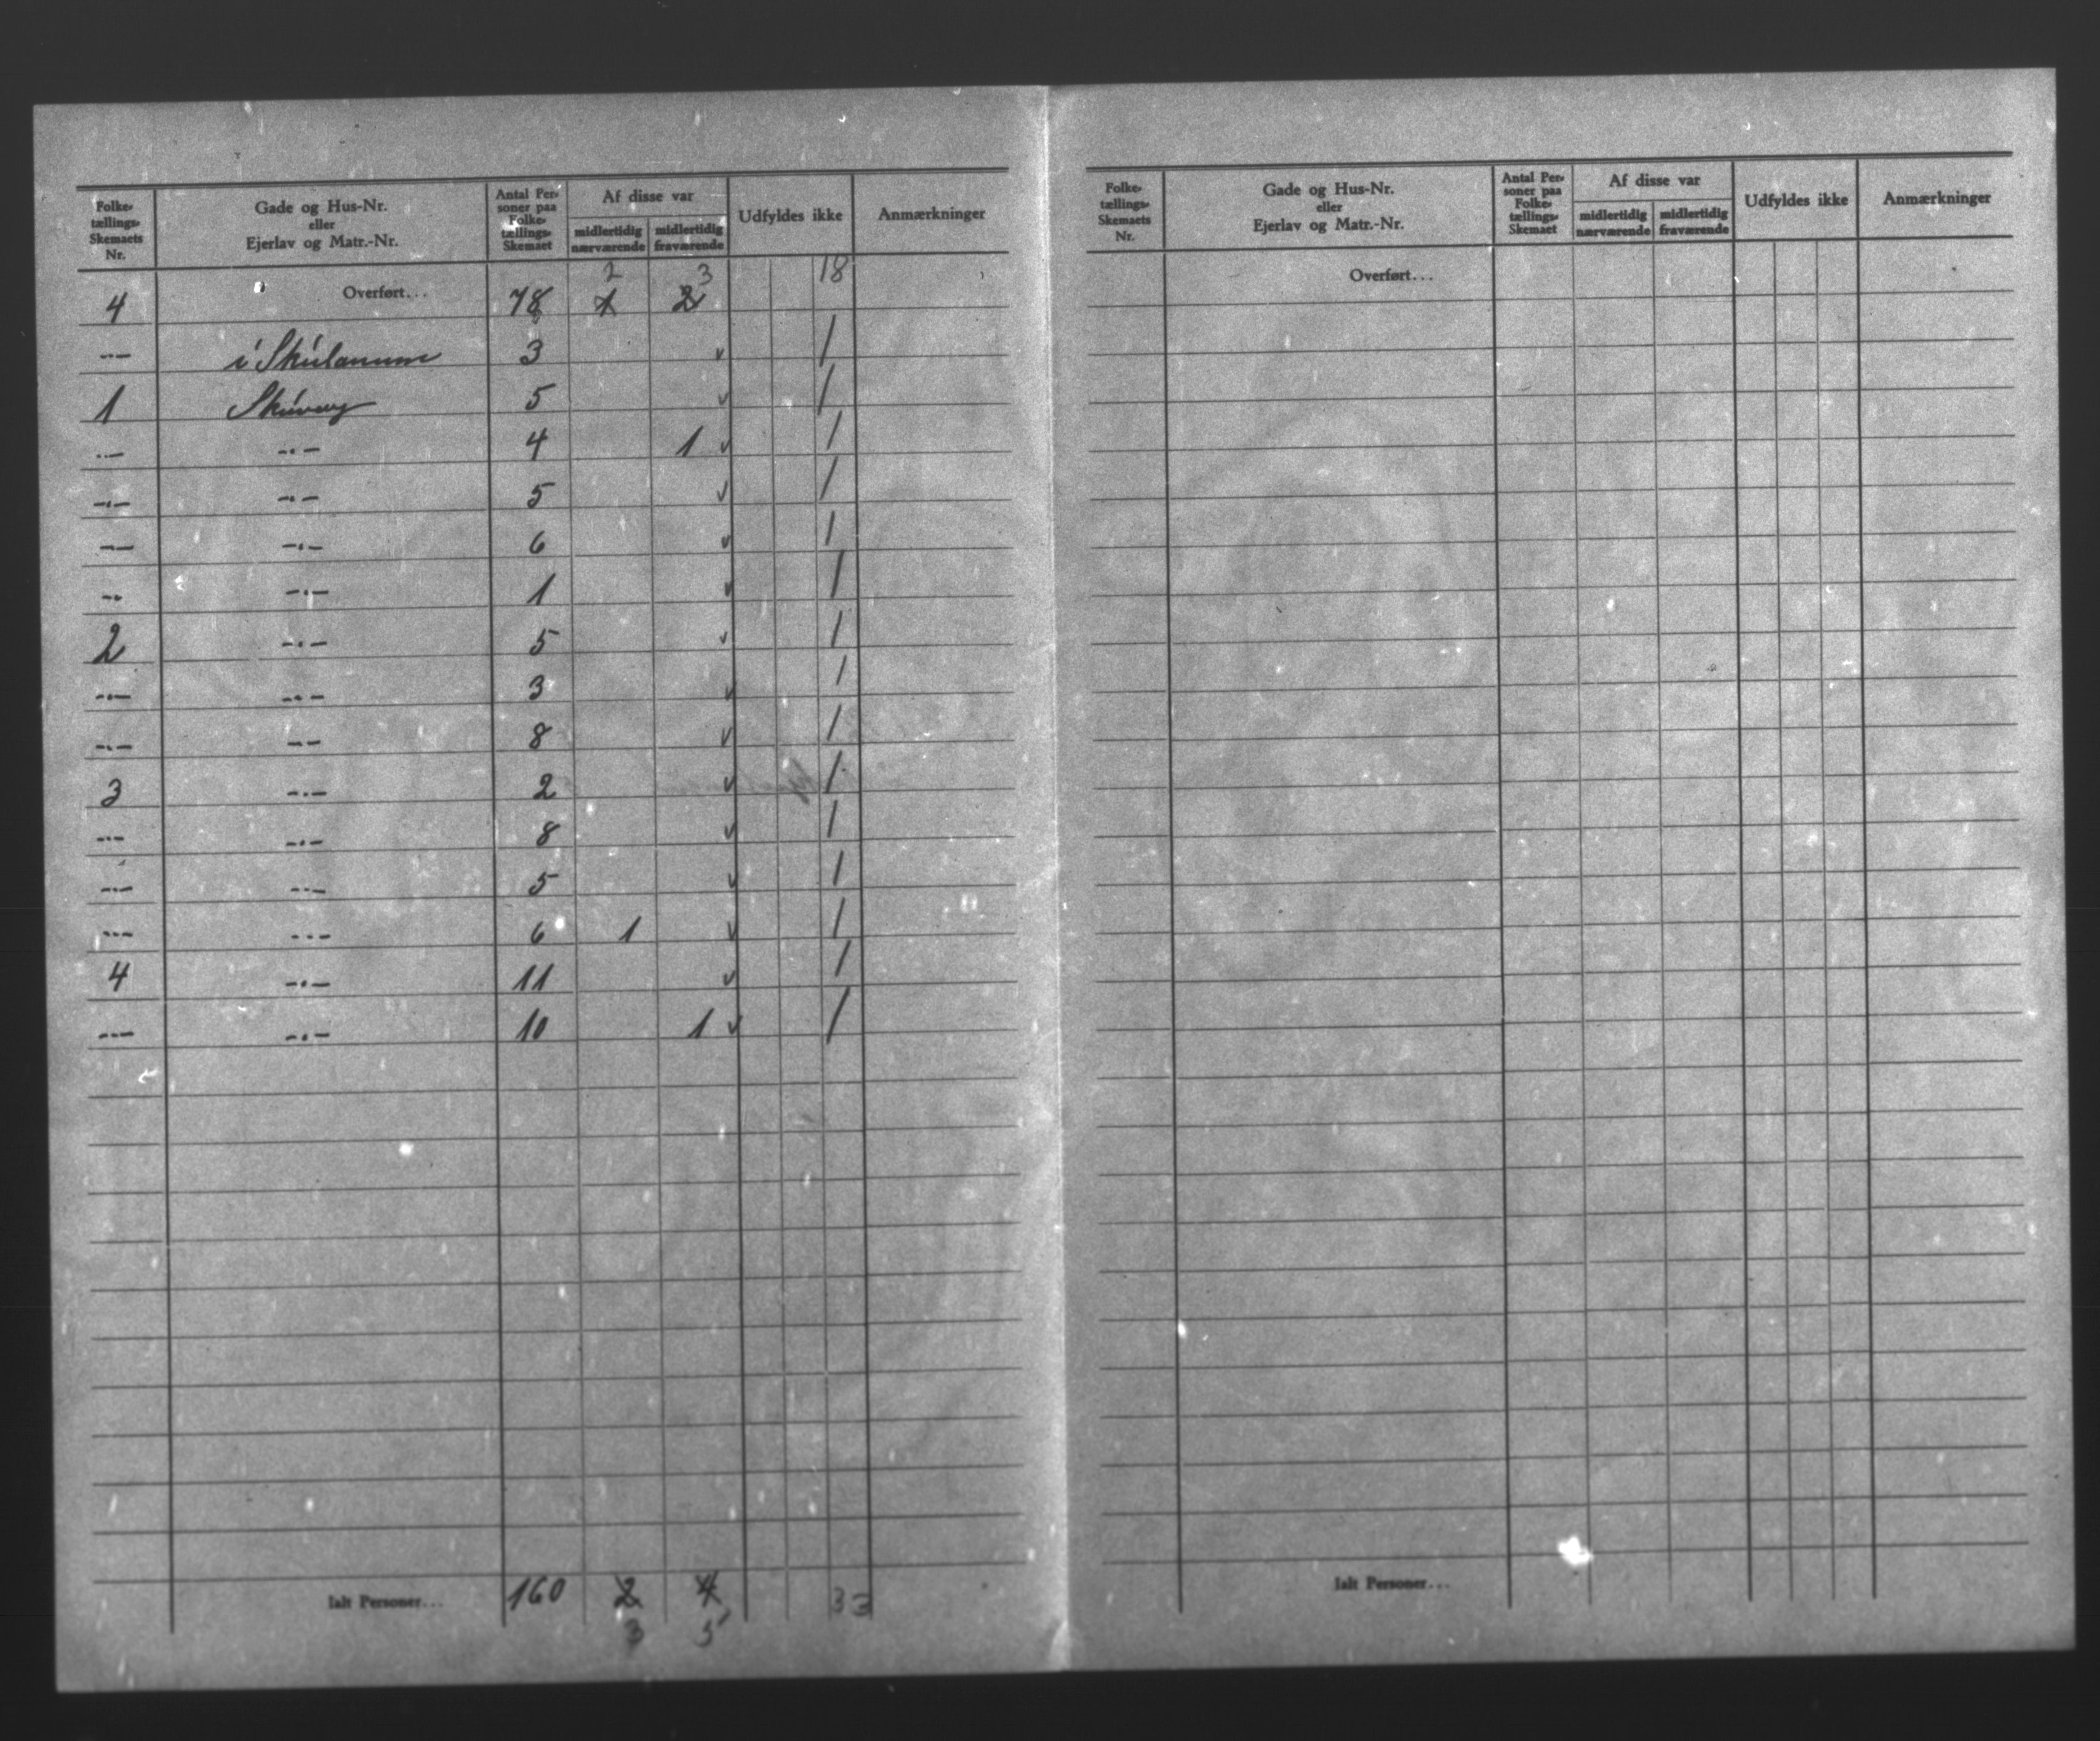 Folke-tællings-Skemaets Nr. | Gade og Hus-Nr. eller Ejerlav og Matr.-Nr. | Antal Per-soner paa Folke-tællings-Skemaet | Af disse var midlertidig nærværende | midlertidig fraværende | Udfyldes ikke | Anmærkninger
2 3 18
4 Overført... 78 1 2
-·- i Skúlanum 3 ✓ /
1 Skúvoy 5 ✓ /
-·- -·- 4 1 ✓ /
-·- -·- 5 ✓ /
-·- -·- 6 ✓ /
-·- -·- 1 ✓ /
2 -·- 5 ✓ /
-·- -·- 3 ✓ /
-·- -·- 8 ✓ /
3 -·- 2 ✓ /
-·- -·- 8 ✓ /
-·- -·- 5 ✓ /
-·- -·- 6 1 ✓ /
4 -·- 11 ✓ /
-·- -·- 10 1 ✓ /
Ialt Personer... 160 2 4 33
3 5
Folke-tællings-Skemaets Nr. | Gade og Hus-Nr. eller Ejerlav og Matr.-Nr. | Antal Per-soner paa Folke-tællings-Skemaet | Af disse var midlertidig nærværende | midlertidig fraværende | Udfyldes ikke | Anmærkninger
Overført...
Ialt Personer...